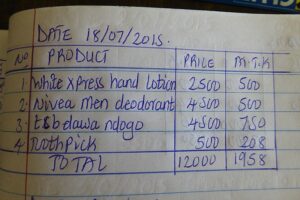 DATE 18/07/2015.
NO PRODUCT PRICE M.T.K
1 White Xpress hand lotion 2500 500
2 Nivea men deodorant 4500 500
3 belawa ndogo 4500 750
4 Toothpick 500 208
TOTAL 12000 1958